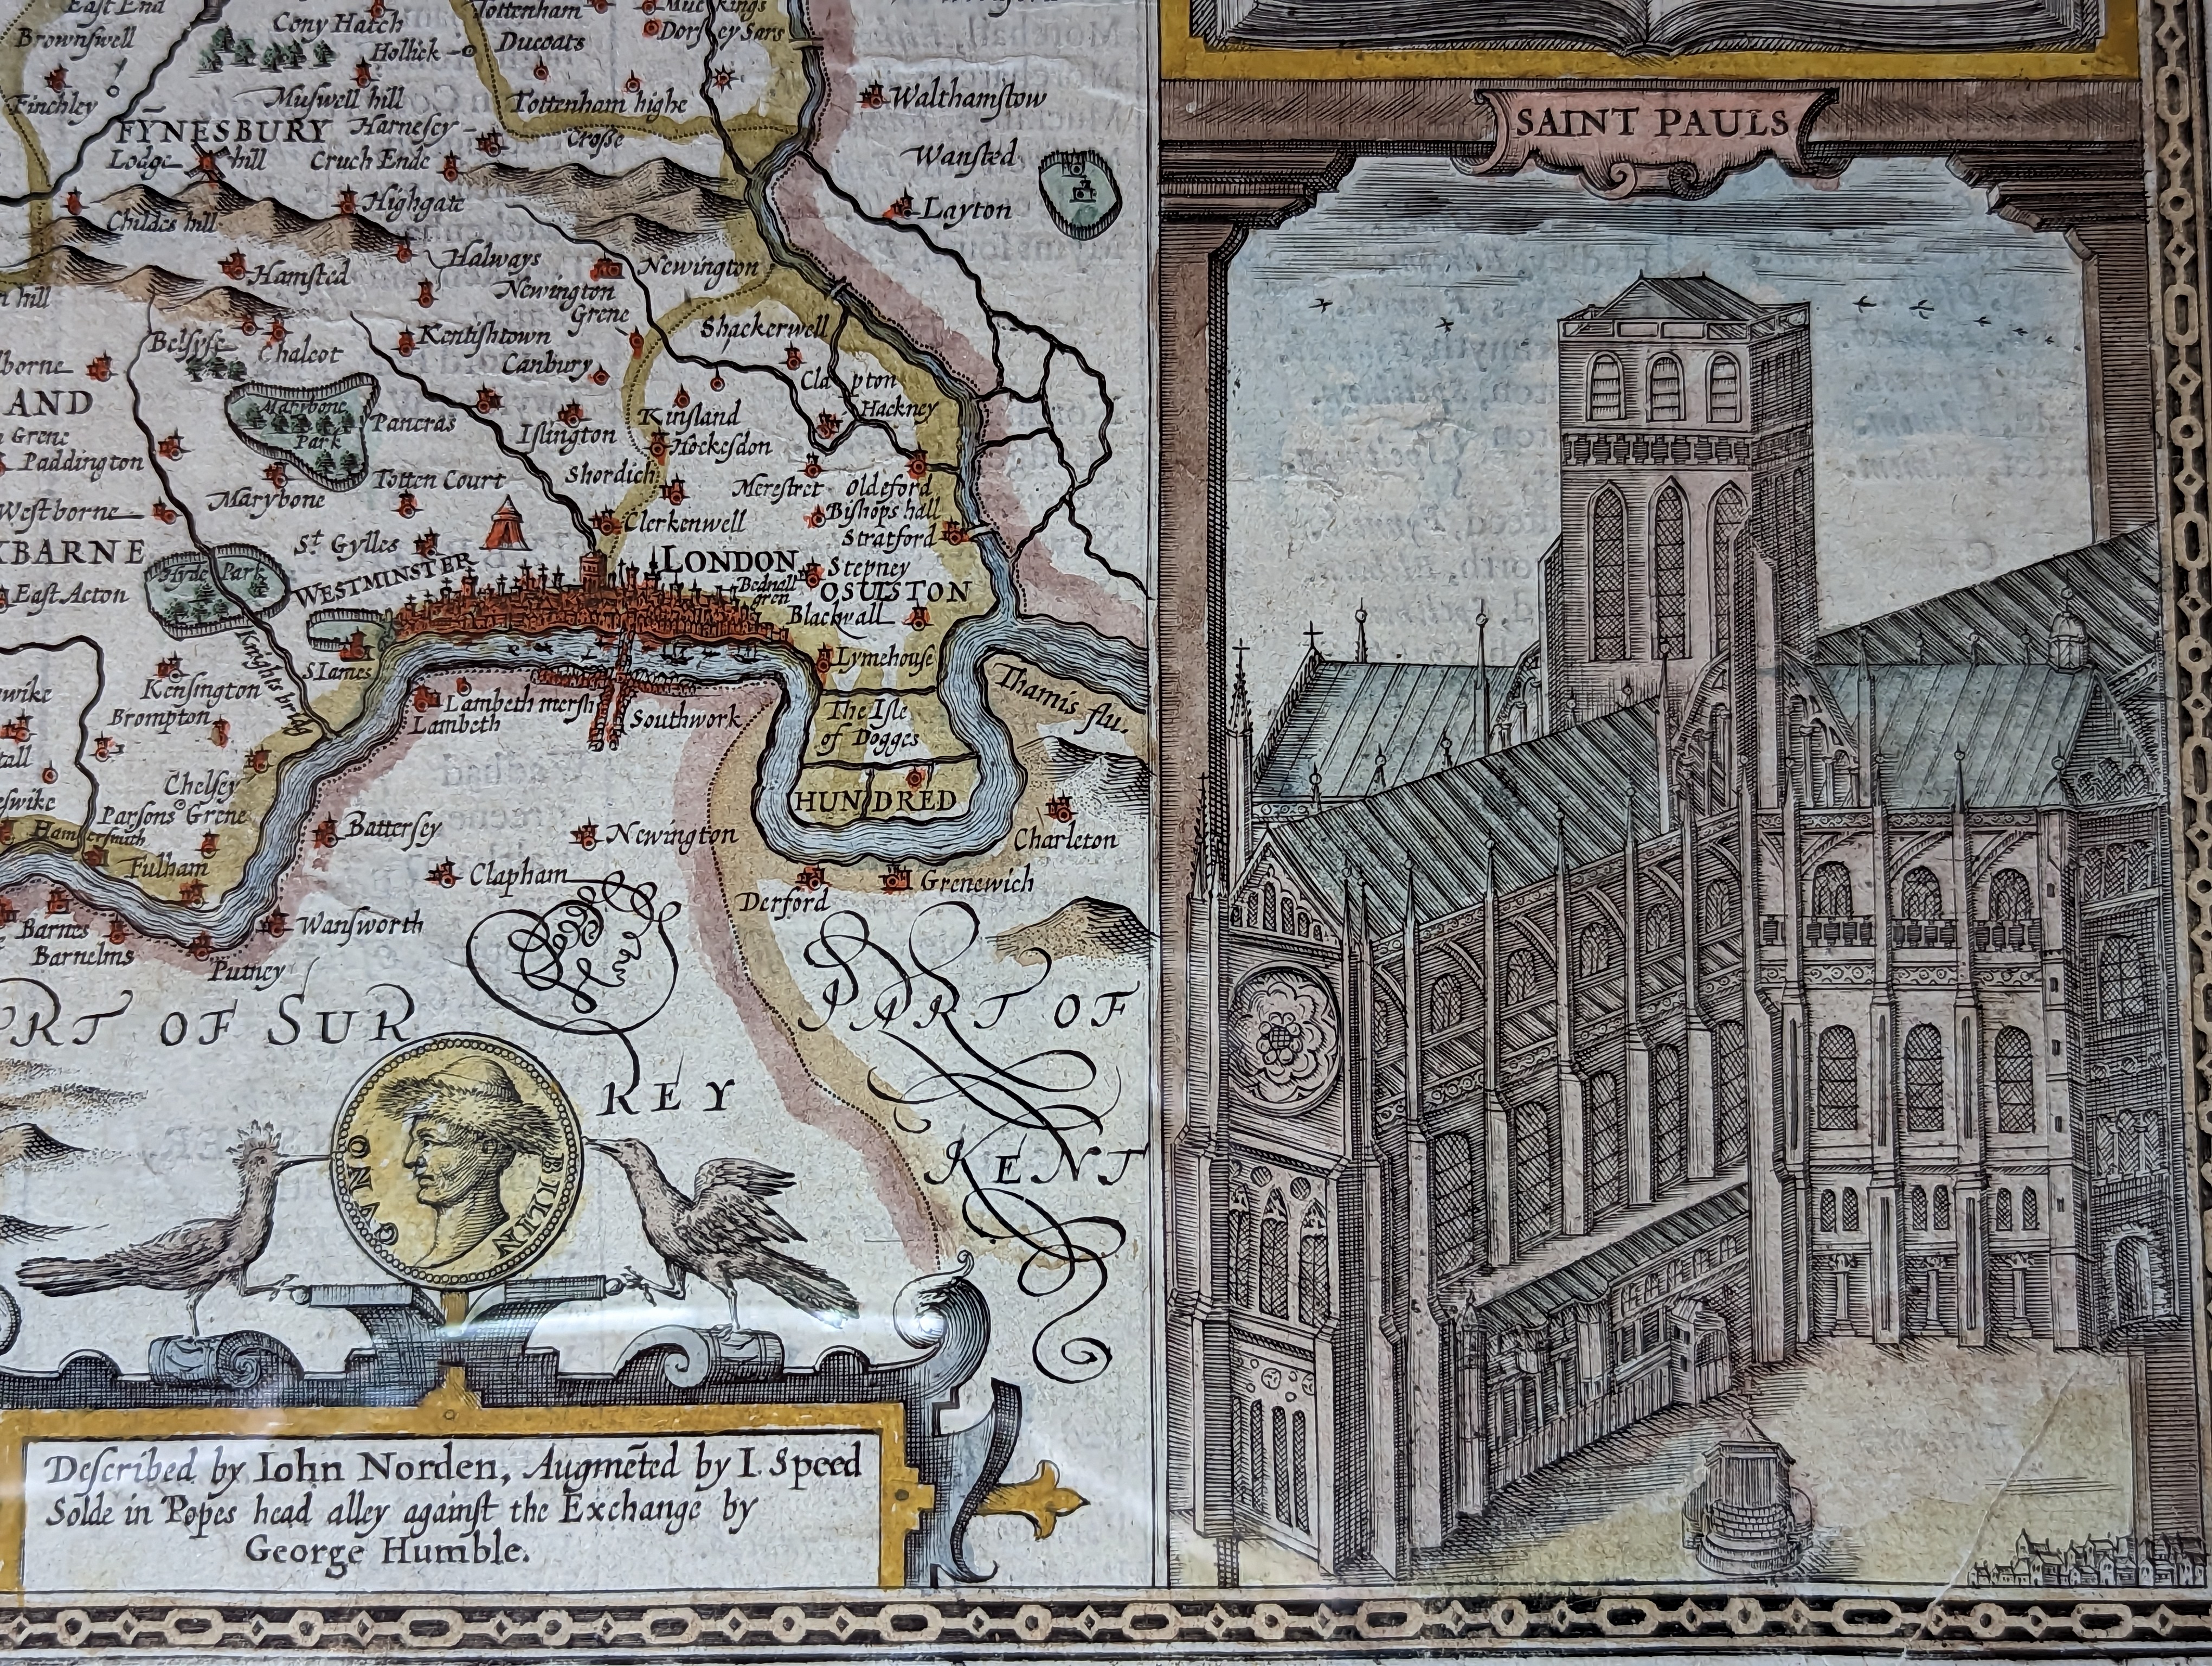 East End
Brownswell
Finchley
Cony Hatch
Hollick
Muswell hill
Tottenham
Ducoats
Muckings
Dorsey Sars
Tottenham highe
Crosse
FYNESBURY
Harnesey
Lodge hill
Cruch Ende
Highgate
Childes hill
Walthamstow
Wansted
Layton
Hamsted
Halways
Newington
Newington
Grene
n hill
Belsyse
Chalcot
Kentishtown
Canbury
Shackerwell
Clapton
Hackney
borne
AND
n Grene
Paddington
Marybone
Park
Pancras
Islington
Kinsland
Hockesdon
Marybone
Totten Court
Shordich
Merestret
Oldeford
Bishops hall
Stratford
Westborne
XBARNE
East Acton
Hyde Park
St Gylles
Clerkenwell
WESTMINSTER
LONDON
Bednall
gren
Stepney
OSULSTON
Blackwall
Knights bridg
S Iames
Lymehouse
Thamis flu.
Kensington
Brompton
Lambeth mersh
Lambeth
Southwork
The Isle
of Dogges
HUNDRED
wike
tall
eswike
Chelsey
Parsons Grene
Hamersmith
Fulham
Battersey
Newington
Clapham
Charleton
Derford
Grenewich
Barnes
Barnelms
Wansworth
Putney
PRT OF SUR
REY
PART OF
KENT
CVNO
BILIN
Described by Iohn Norden, Augmēted by I. Speed
Solde in Popes head alley against the Exchange by
George Humble.
SAINT PAULS